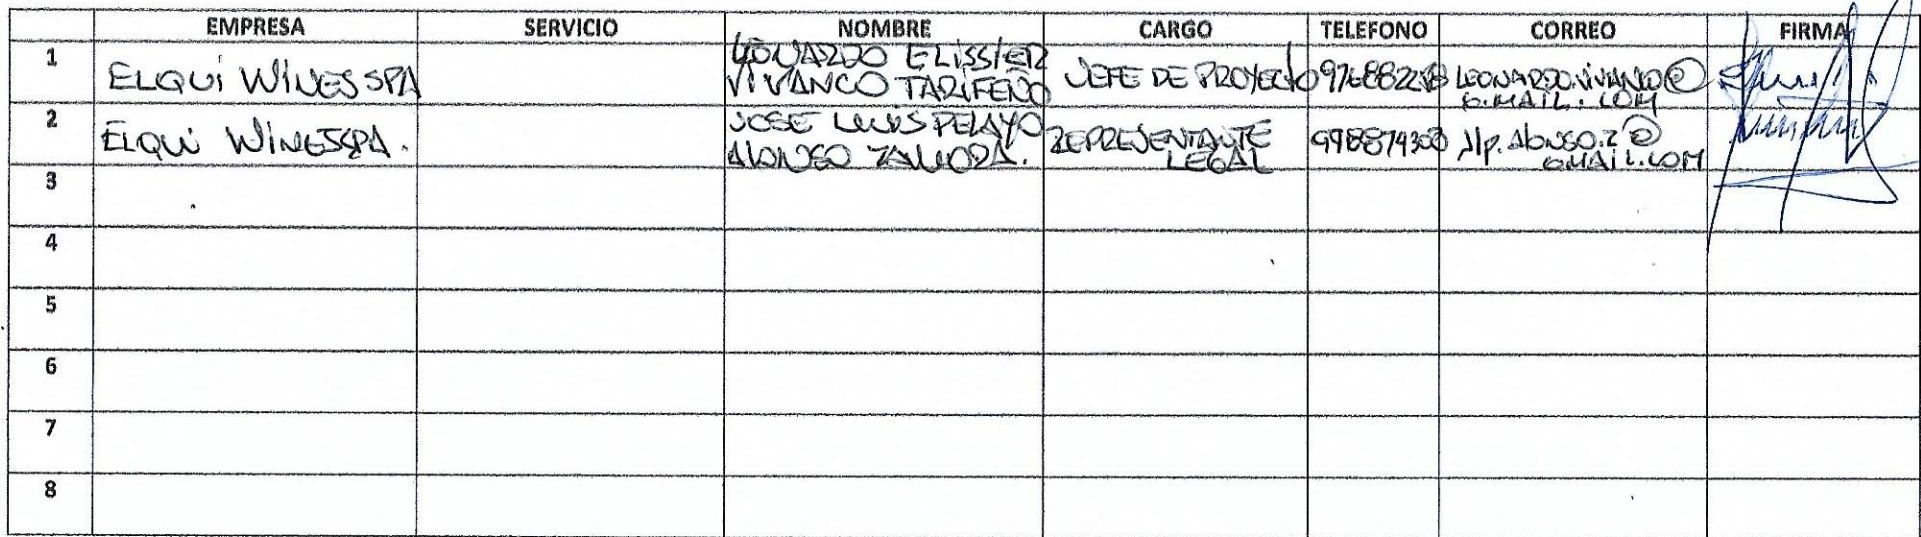 EMPRESA SERVICIO NOMBRE CARGO TELEFONO CORREO FIRMA
1 ELQUI WINES SPA LEONARDO ELISSIER VIVANCO TARIFEÑO JEFE DE PROYECTO LEONARDO.VIVANCO@ G.MAIL.COM
2 ELQUI WINES SPA. JOSE LUIS PELAYO ALONSO ZAMORA. REPRESENTANTE LEGAL 998874308 Jlp.Alonso.z@ GMAIL.COM
3
4
5
6
7
8